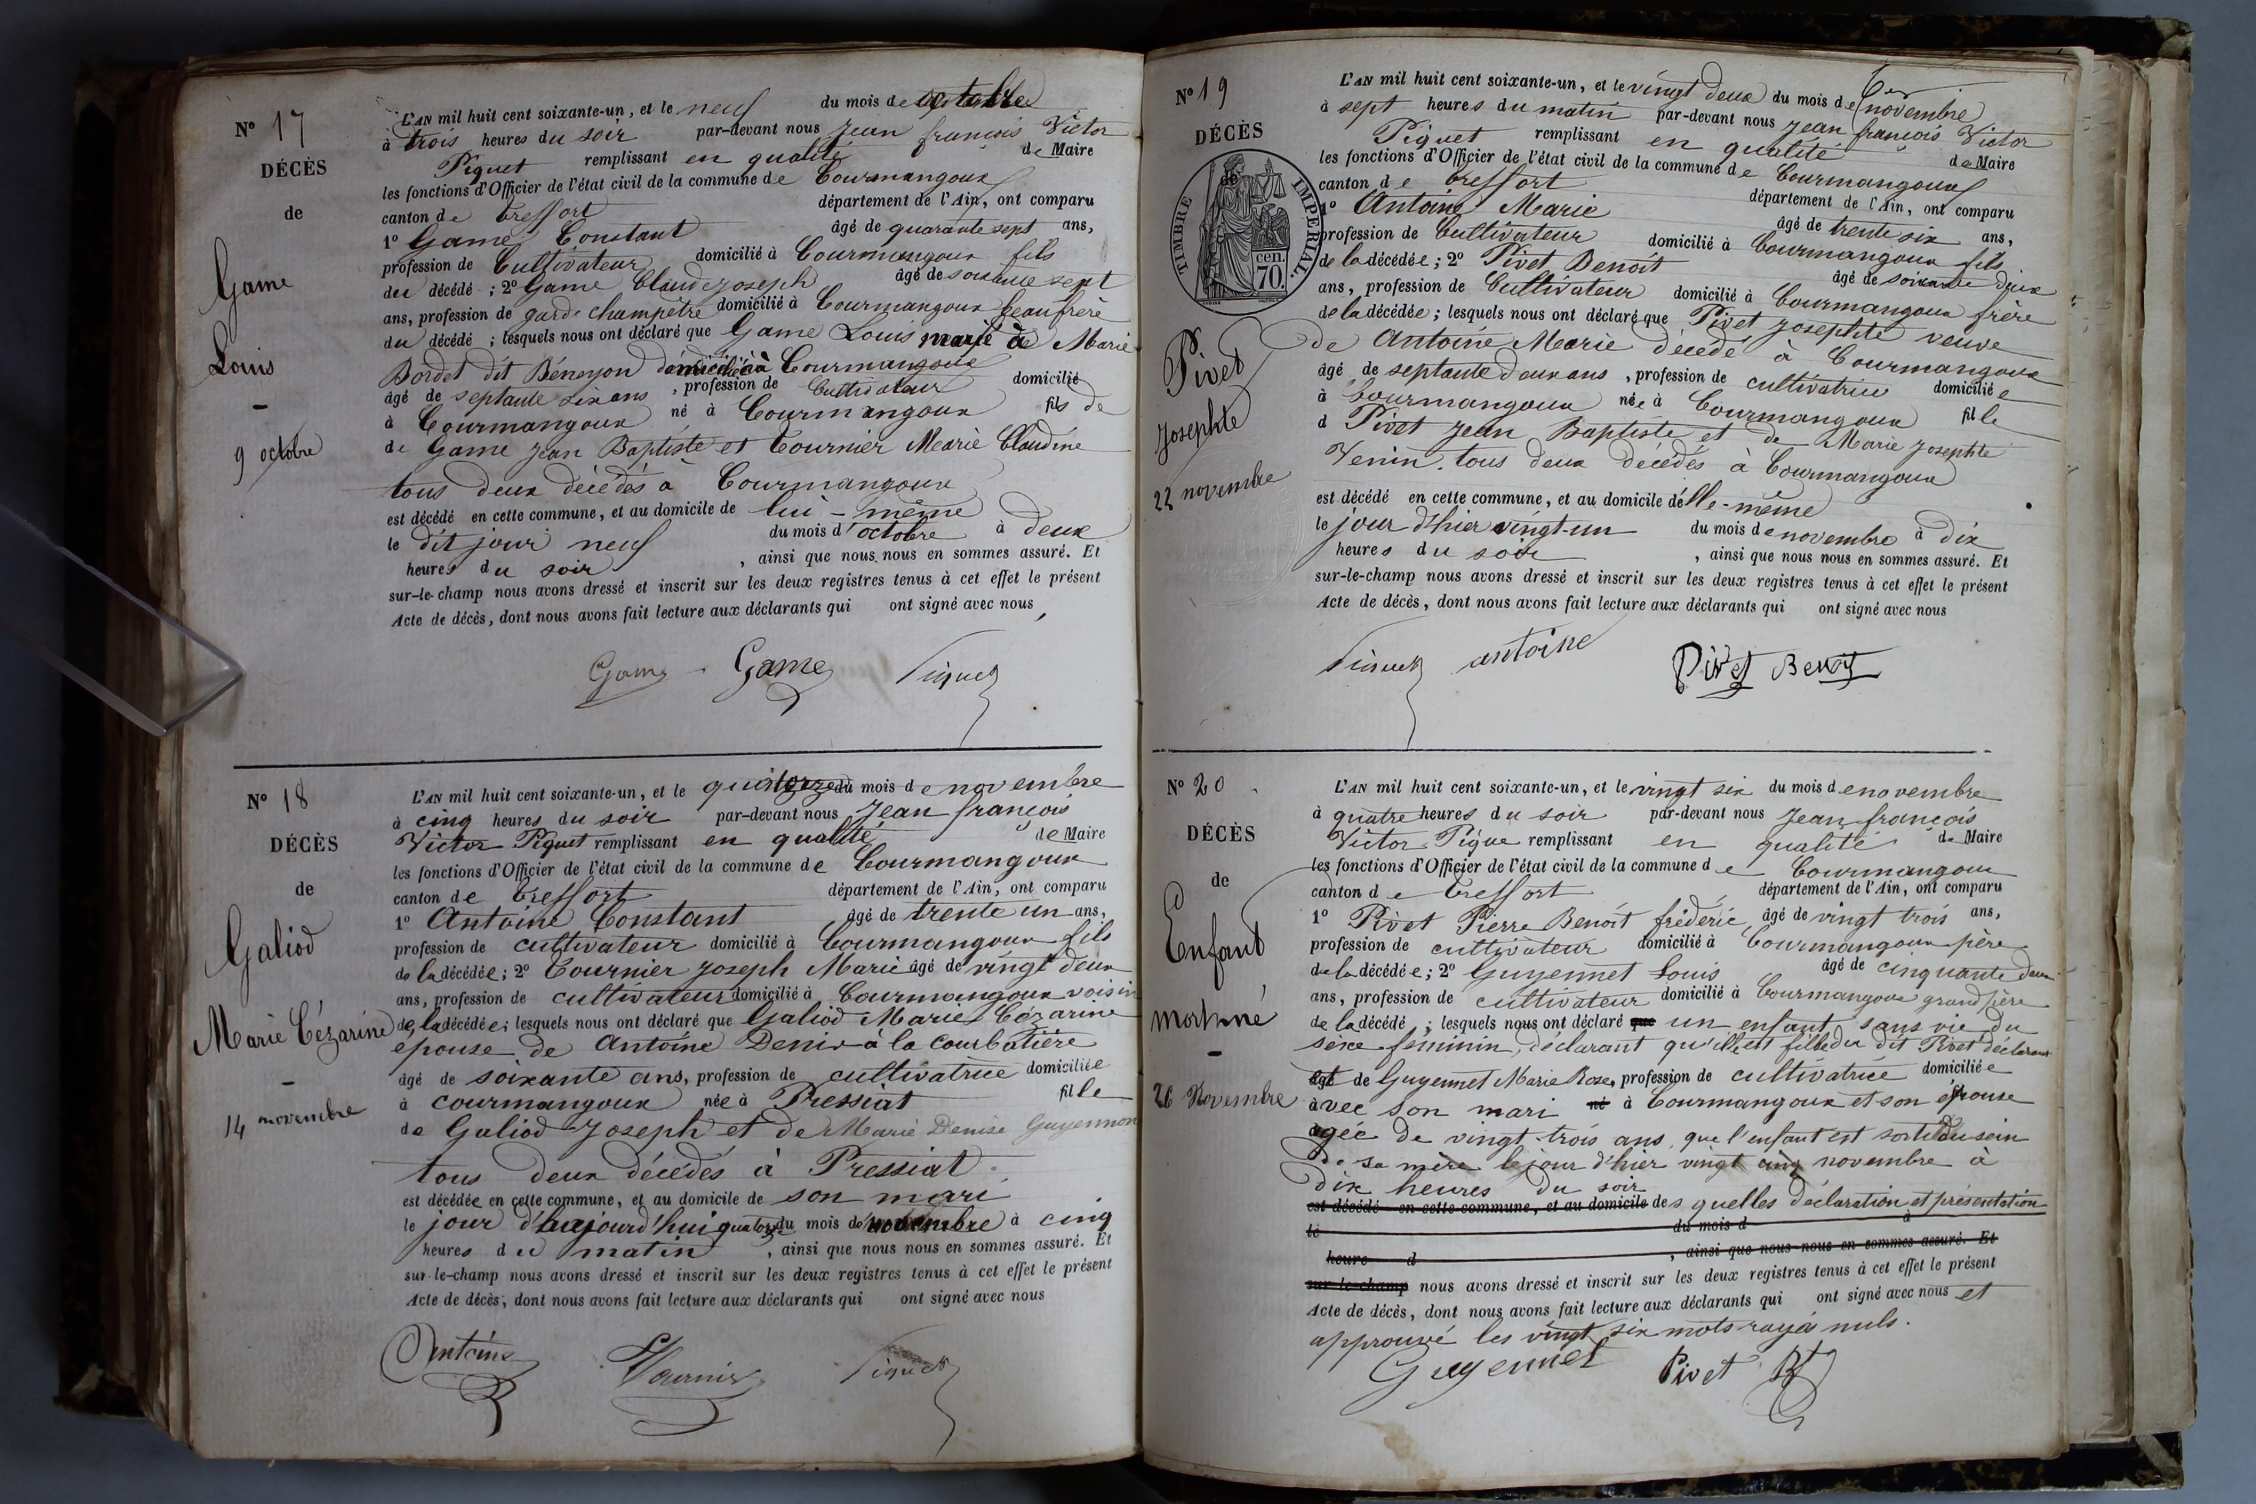 N° 17
DÉCÈS
de
Game
Louis
9 octobre
L'AN mil huit cent soixante-un, et le neuf du mois de octobre
à trois heures du soir par-devant nous Jean françois Victor
Piquet remplissant en qualité de Maire
les fonctions d'Officier de l'état civil de la commune de Courmangoux
canton de Treffort département de l'Ain, ont comparu
1° Game Constant âgé de quarante sept ans,
profession de Cultivateur domicilié à Courmangoux fils
du décédé ; 2° Game Claude Joseph âgé de soixante sept
ans, profession de garde champêtre domicilié à Courmangoux beau frère
du décédé ; lesquels nous ont déclaré que Game Louis marié à Marie
Bordet dit Béneyon domicilié à Courmangoux
âgé de septante six ans , profession de Cultivateur domicilié
à Courmangoux né à Courmangoux fils de
de Game Jean Baptiste et Tournier Marie Claudine
tous deux décédés à Courmangoux
est décédé en cette commune, et au domicile de lui-même
le dit jour neuf du mois d'octobre à deux
heures du soir , ainsi que nous nous en sommes assuré. Et
sur-le-champ nous avons dressé et inscrit sur les deux registres tenus à cet effet le présent
Acte de décès, dont nous avons fait lecture aux déclarants qui ont signé avec nous
Game Game Piquet
N° 18
DÉCÈS
de
Galiod
Marie Cézarine
14 novembre
L'AN mil huit cent soixante-un, et le quatorze du mois de novembre
à cinq heures du soir par-devant nous Jean françois
Victor Piquet remplissant en qualité de Maire
les fonctions d'Officier de l'état civil de la commune de Courmangoux
canton de Treffort département de l'Ain, ont comparu
1° Antoine Constant âgé de trente un ans,
profession de cultivateur domicilié à Courmangoux fils
de la décédée ; 2° Tournier Joseph Marie âgé de vingt deux
ans, profession de cultivateur domicilié à Courmangoux voisin
de la décédée ; lesquels nous ont déclaré que Galiod Marie Cézarine
epouse de Antoine Denis à la Courbatière
âgé de soixante ans, profession de cultivatrice domiciliée
à Courmangoux née à Pressiat fille
de Galiod Joseph et de Marie Denise Guyennon
tous deux décédés à Pressiat
est décédée en cette commune, et au domicile de son mari
le jour d'aujourd'hui quatorze du mois de novembre à cinq
heures du matin , ainsi que nous nous en sommes assuré. Et
sur-le-champ nous avons dressé et inscrit sur les deux registres tenus à cet effet le présent
Acte de décès, dont nous avons fait lecture aux déclarants qui ont signé avec nous
Antoine Tournier Piquet
N° 19
DÉCÈS
de
TIMBRE IMPÉRIAL.
70. cen.
Pivet
Josephte
22 novembre
L'AN mil huit cent soixante-un, et le vingt deux du mois de novembre
à sept heures du matin par-devant nous Jean françois Victor
Piquet remplissant en qualité de Maire
les fonctions d'Officier de l'état civil de la commune de Courmangoux
canton de Treffort département de l'Ain, ont comparu
1° Antoine Marie âgé de trente six ans,
profession de Cultivateur domicilié à Courmangoux fils
de la décédée ; 2° Pivet Benoît âgé de soixante deux
ans, profession de Cultivateur domicilié à Courmangoux frère
de la décédée ; lesquels nous ont déclaré que Pivet Josephte veuve
de Antoine Marie décédé à Courmangoux
âgé de septante deux ans , profession de cultivatrice domiciliée
à Courmangoux née à Courmangoux fille
d Pivet Jean Baptiste et de Marie Josephte
Venin. tous deux décédés à Courmangoux
est décédé en cette commune, et au domicile d'elle-même
le jour d'hier vingt-un du mois de novembre à dix
heures du soir , ainsi que nous nous en sommes assuré. Et
sur-le-champ nous avons dressé et inscrit sur les deux registres tenus à cet effet le présent
Acte de décès, dont nous avons fait lecture aux déclarants qui ont signé avec nous
Piquet antoine Pivet Benoit
N° 20
DÉCÈS
de
Enfant
mort né
26 Novembre
L'AN mil huit cent soixante-un, et le vingt six du mois de novembre
à quatre heures du soir par-devant nous Jean françois
Victor Pique remplissant en qualité de Maire
les fonctions d'Officier de l'état civil de la commune de Courmangoux
canton de Treffort département de l'Ain, ont comparu
1° Pivet Pierre Benoît frédéric âgé de vingt trois ans,
profession de cultivateur domicilié à Courmangoux père
de la décédée ; 2° Guyennet Louis âgé de cinquante deux
ans, profession de cultivateur domicilié à Courmangoux grand père
de la décédé ; lesquels nous ont déclaré que un enfant sans vie du
sexe féminin, déclarant qu'elle est fille du dit Pivet déclarant
et de Guyennet Marie Rose, profession de cultivatrice domiciliée
avec son mari né à Courmangoux et son épouse
agée de vingt-trois ans, que l'enfant est sortie du sein
de sa mère le jour d'hier vingt cinq novembre à
dix heures du soir
est décédé en cette commune, et au domicile des quelles déclaration et présentation
le du mois d à
heure d , ainsi que nous nous en sommes assuré. Et
sur-le-champ nous avons dressé et inscrit sur les deux registres tenus à cet effet le présent
Acte de décès, dont nous avons fait lecture aux déclarants qui ont signé avec nous et
approuvé les vingt six mots rayés nuls.
Guyennet Pivet Bt